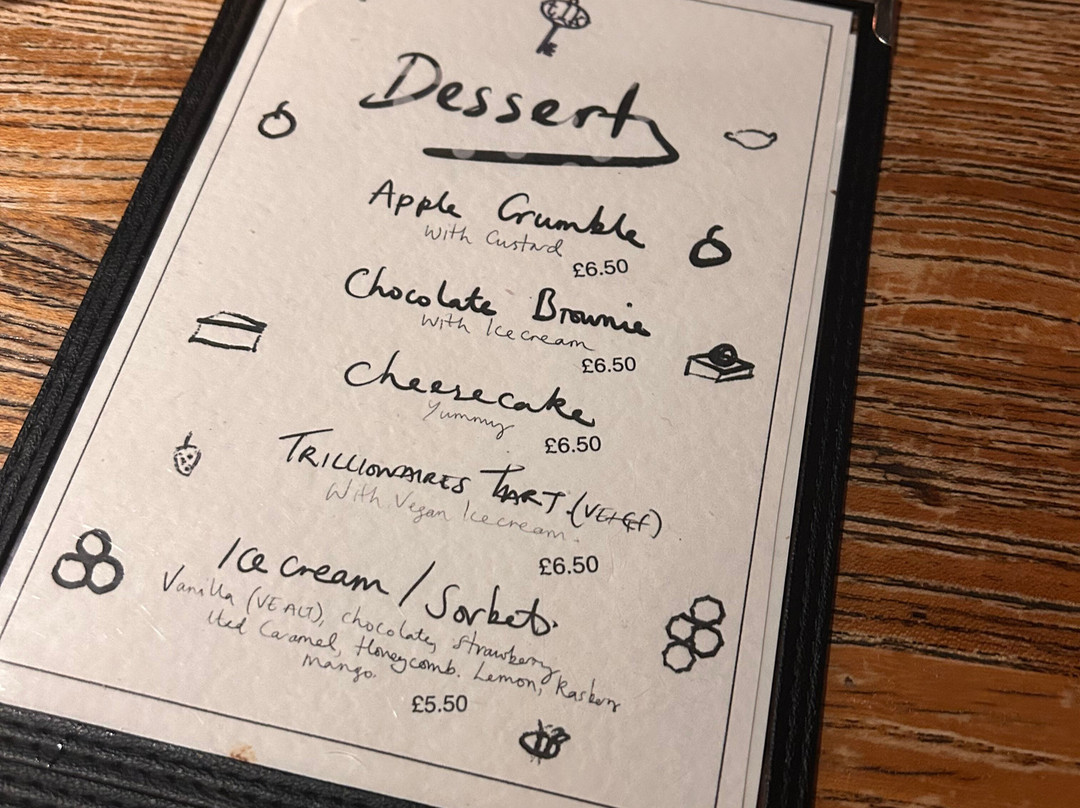 tlk
Dessert
Apple Crumble
With Custard
£6.50
Chocolate Brownie
With Ice cream
£6.50
Cheesecake
Yummy
£6.50
TRILLIONAIRES TART (VE+GF)
With Vegan Icecream.
£6.50
Ice cream / Sorbet.
Vanilla (VE ALT), chocolate, strawberry
lted Caramel, Honeycomb. Lemon,
Mango.
£5.50